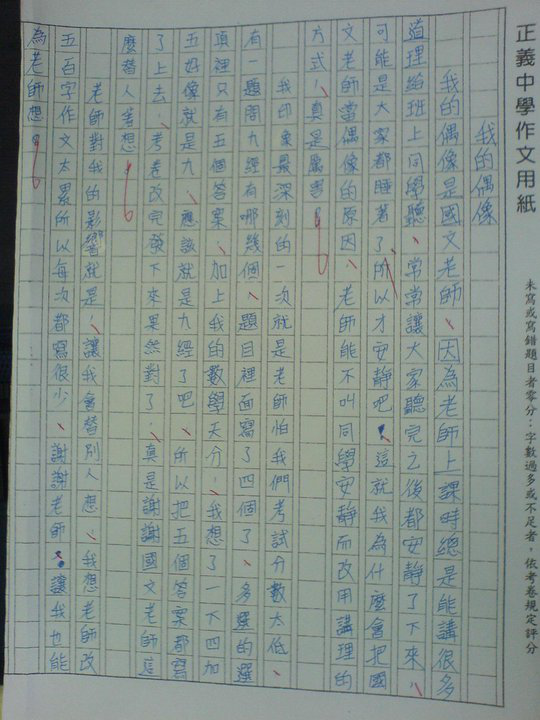 正義中學作文用紙
未寫或寫錯題目者零分；字數過多或不足者，依考卷規定評分
我的偶像
我的偶像是國文老師、因為老師上課時總是能講很多
道理給班上同學聽、常常讓大家聽完之後都安靜了下來，
可能是大家都睡著了所以才安靜吧。這就我為什麼會把國
文老師當偶像的原因、老師能不叫同學安靜而改用講理的
方式，真是厲害。
我印象最深刻的一次就是老師怕我們考試分數太低、
有一題問九經有哪幾個、題目裡面寫了四個了、多選的選
項裡只有五個答案、加上我的數學天分，我想了一下四加
五好像就是九、應該就是九經了吧、所以把五個答案都寫
了上去、考卷改完發下來果然對了，真是謝謝國文老師這
麼替人著想。
老師對我的影響就是，讓我會替別人想、我想老師改
五百字作文太累所以每次都寫很少、謝謝老師。讓我也能
為老師想。